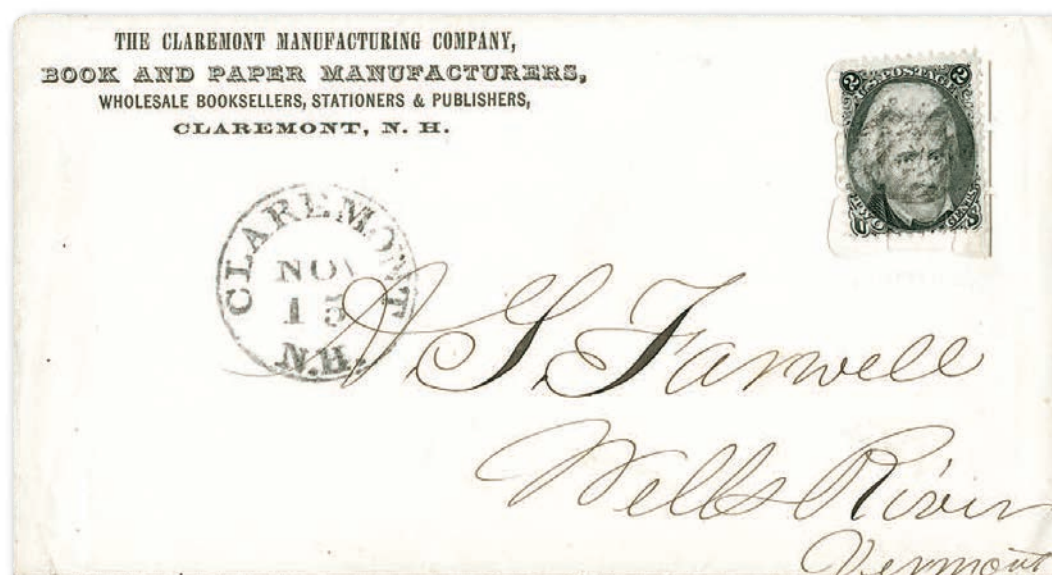 THE CLAREMONT MANUFACTURING COMPANY,
BOOK AND PAPER MANUFACTURERS,
WHOLESALE BOOKSELLERS, STATIONERS & PUBLISHERS,
CLAREMONT, N. H.
2 U.S. POSTAGE 2
TWO CENTS
CLAREMONT
NOV
15
N.H.
S. Farwell
Wells River
Vermont